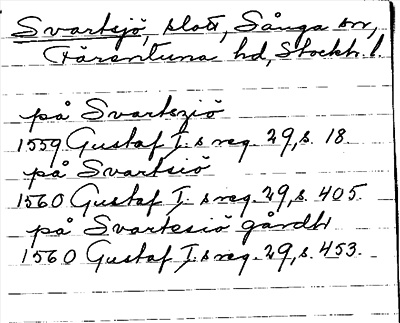 Svartsjö, slott, Sånga sn,
Färentuna hd, Stockh. l.
på Svartsziö
1559 Gustaf I.s reg. 29, s. 18.
på Svartsiö
1560 Gustaf I.s reg. 29, s. 405.
på Svartesiö gårdh
1560 Gustaf I.s reg. 29, s. 453.